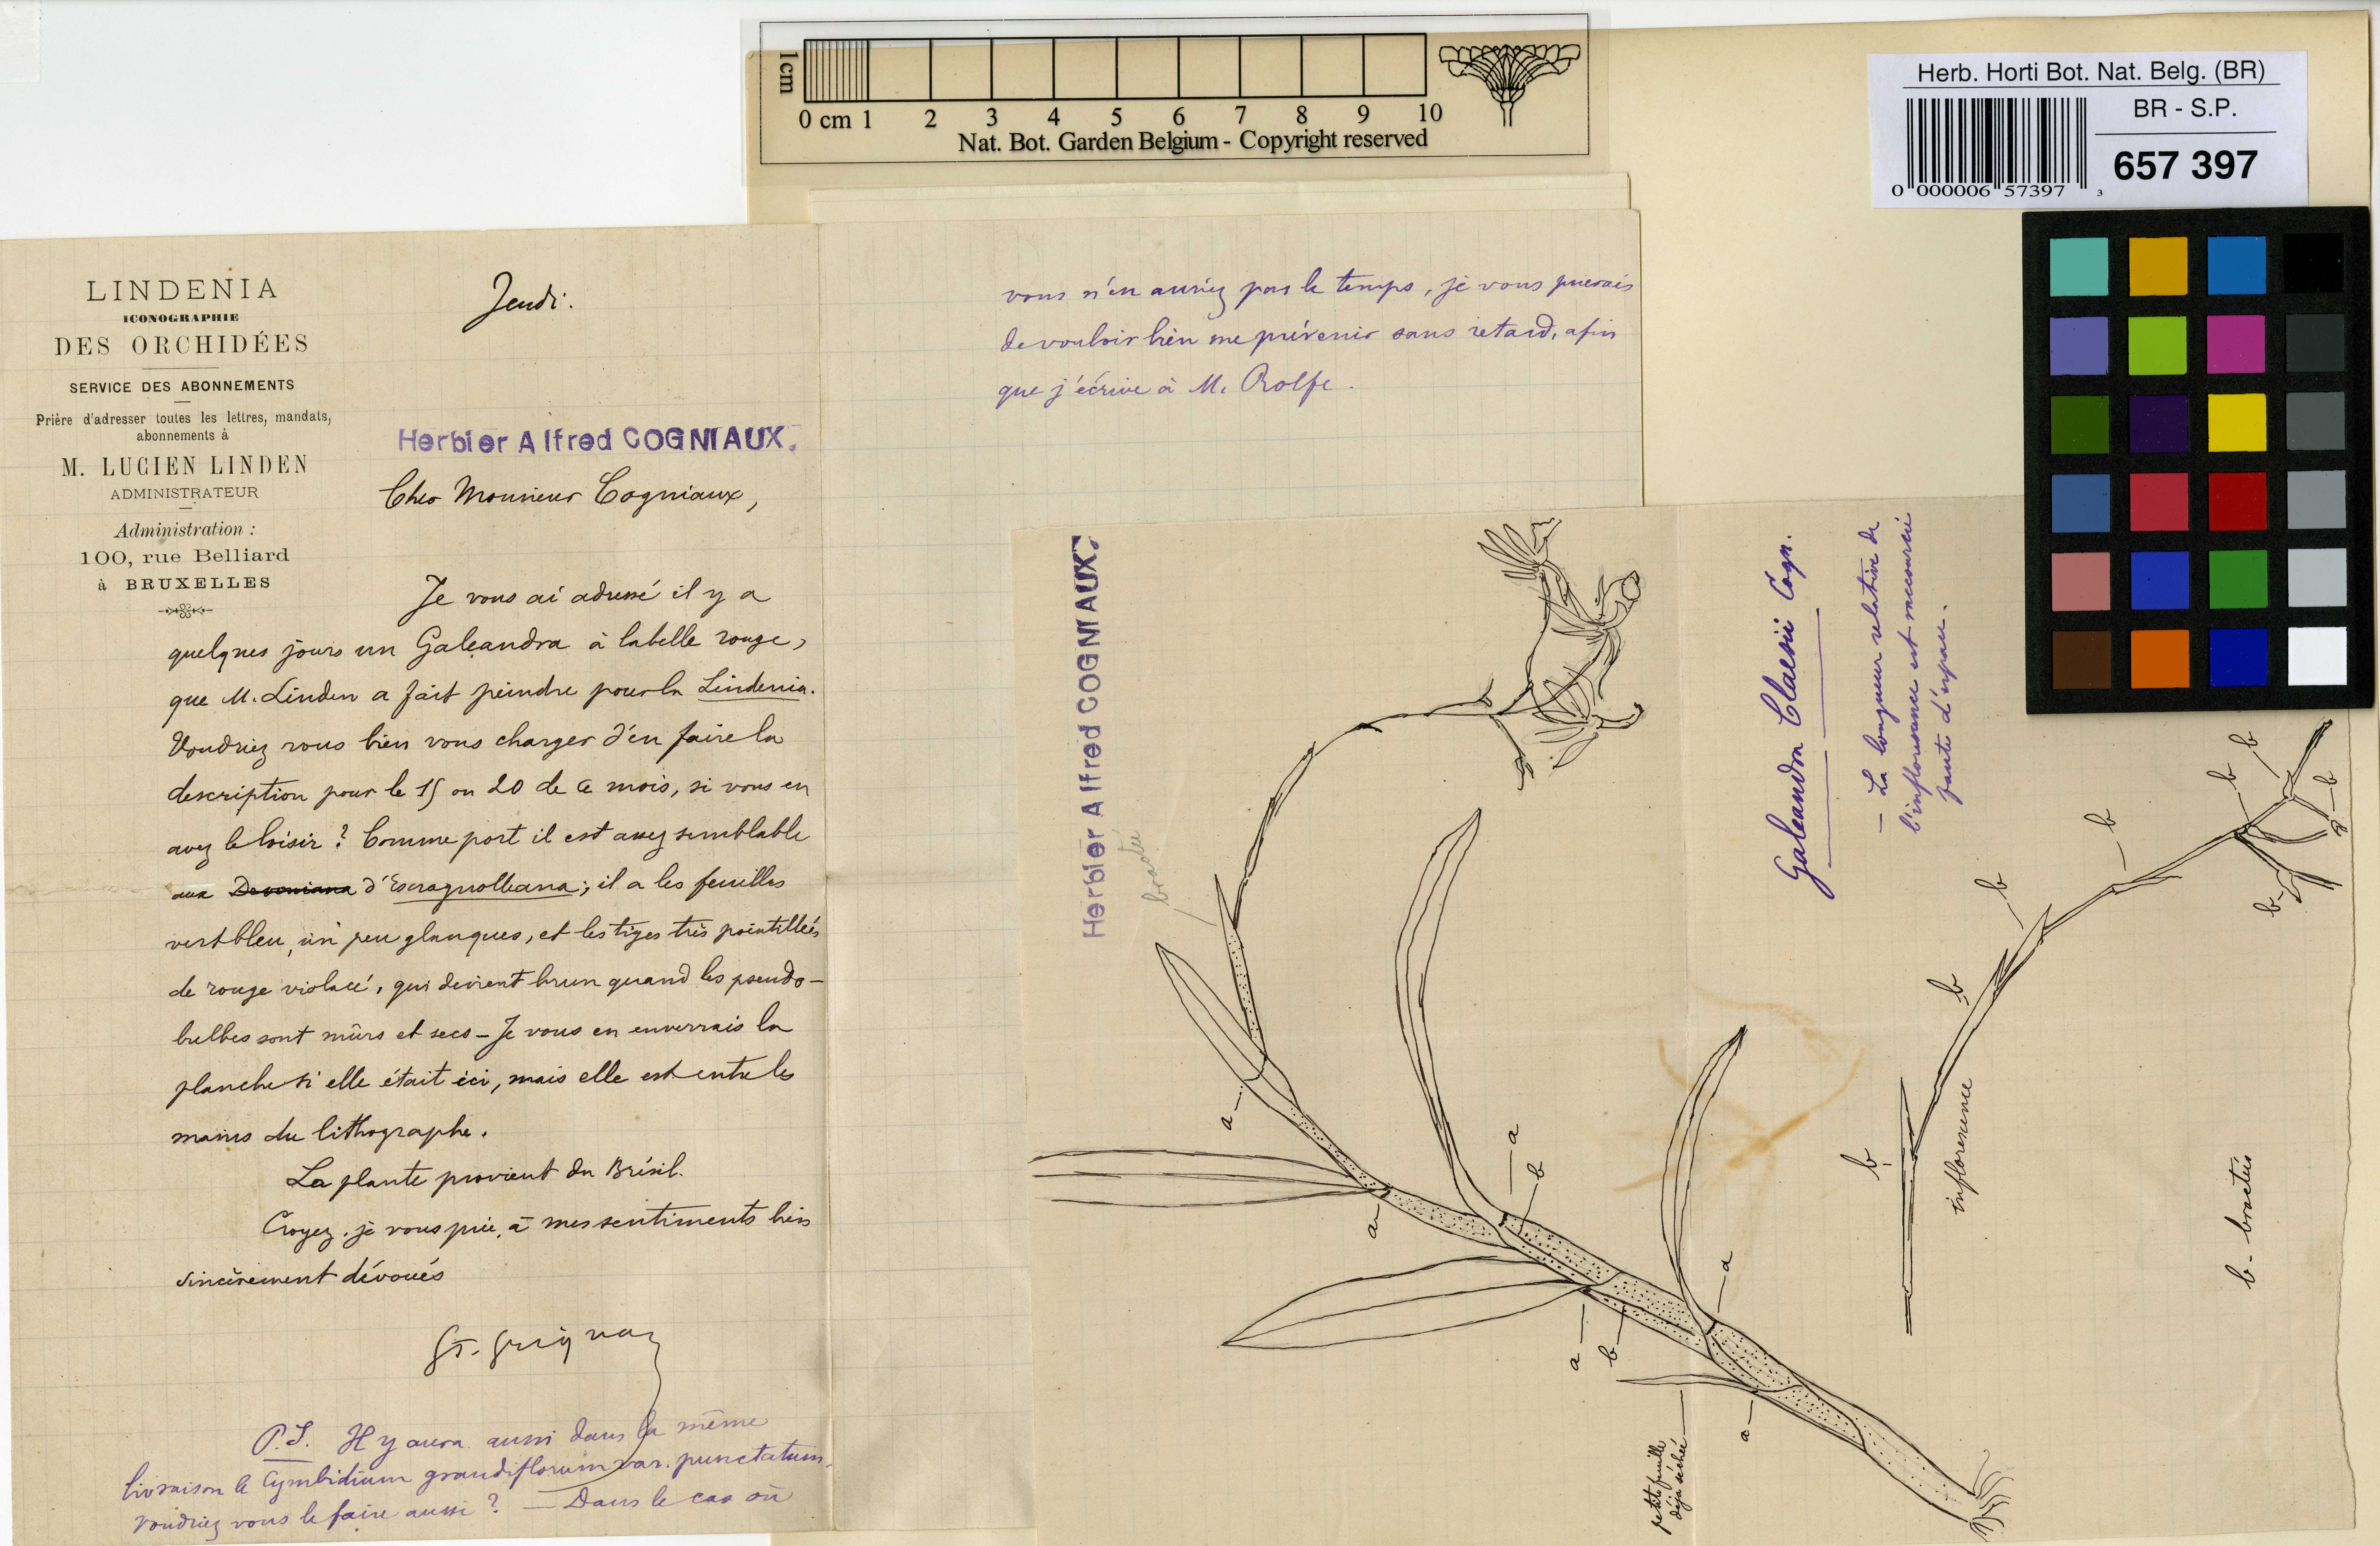 1cm
0 cm 1 2 3 4 5 6 7 8 9 10
Nat. Bot. Garden Belgium - Copyright reserved
Herb. Horti Bot. Nat. Belg. (BR)
BR - S.P.
657 397
0 000006 57397 3
LINDENIA
ICONOGRAPHIE
DES ORCHIDÉES
SERVICE DES ABONNEMENTS
Prière d'adresser toutes les lettres, mandats,
abonnements à
M. LUCIEN LINDEN
ADMINISTRATEUR
Administration :
100, rue Belliard
à BRUXELLES
Jeudi.
Herbier Alfred COGNIAUX.
Cher Monsieur Cogniaux,
Je vous ai adressé il y a
quelques jours un Galeandra à labelle rouge,
que M. Linden a fait peindre pour la Lindenia.
Voudriez vous bien vous charger d'en faire la
description pour le 15 ou 20 de ce mois, si vous en
avez le loisir ? Comme port il est assez semblable
aux Devoniana d'Escragnolleana ; il a les feuilles
vert bleu, un peu glauques, et les tiges très pointillées
de rouge violacé, qui devient brun quand les pseudo-
bulbes sont mûrs et secs - Je vous en enverrais la
planche si elle était ici, mais elle est entre les
mains du lithographe.
La plante provient du Brésil.
Croyez, je vous prie, à mes sentiments bien
sincèrement dévoués
G. Grignan
P.S. Il y aura aussi dans la même
livraison le Cymbidium grandiflorum var. punctatum.
Voudriez vous le faire aussi ? — Dans le cas où
vous n'en auriez pas le temps, je vous prierais
de vouloir bien me prévenir sans retard, afin
que j'écrive à M. Rolfe.
Herbier Alfred COGNIAUX.
bractée
Galeandra Claesii Cogn.
— La longueur relative de
l'inflorescence est raccourcie
faute d'espace.
a
a
a
b
a
b
a
a
petite feuille
déjà séchée
b
b
b
b
b
b
b
b
inflorescence
b - bractées